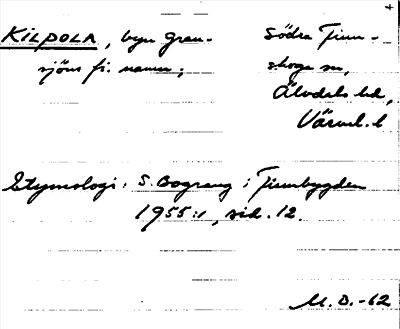 KILPOLA, byn Gran- Södra Finn-
sjöns fi. namn; skoga sn,
Älvdals hd,
Värml. l
Etymologi: S. Bograng i Finnbygden
1955:1, sid. 12.
M. D. -62